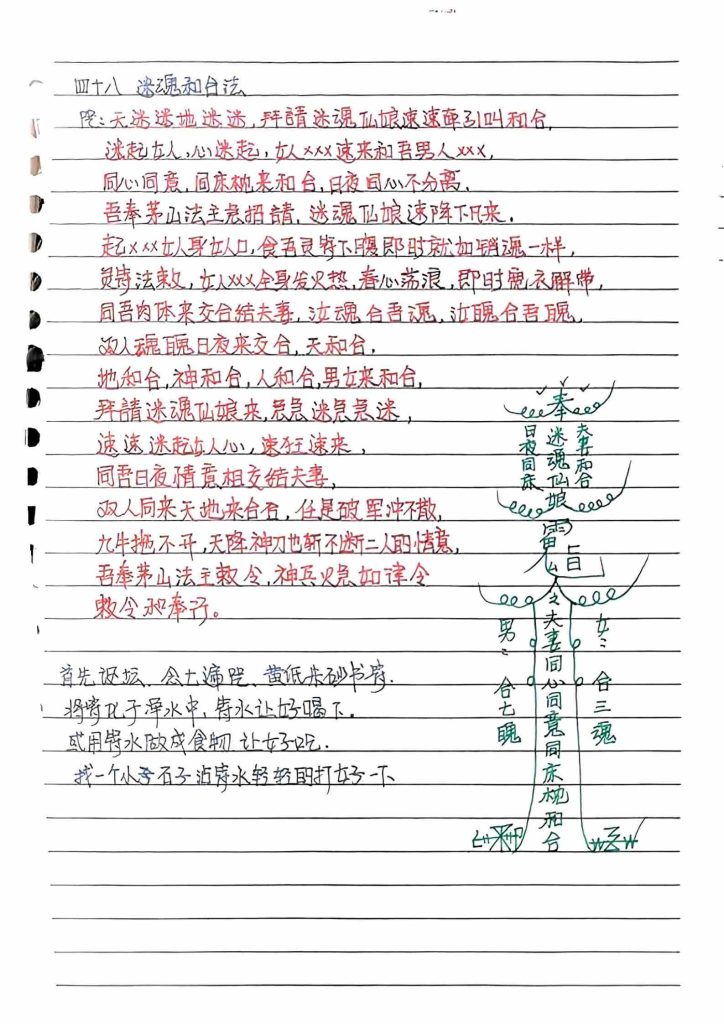 四十八 迷魂和合法
咒：天迷迷地迷迷，拜請迷魂仙娘速速牽引叫和合，
迷起女人，心迷起，女人xxx速来和吾男人xxx，
同心同意，同床枕来和合，日夜同心不分离，
吾奉茅山法主急招請，迷魂仙娘速降下凡来，
起xxx女人身女人口，食吾灵符下腹即时就如銷魂一样，
灵符法敕，女人xxx全身发火热，春心荡浪，即时寬衣解带，
同吾肉体来交合结夫妻，汝魂合吾魂，汝魄合吾魄，
双人魂魄日夜来交合，天和合，
地和合，神和合，人和合，男女来和合，
拜請迷魂仙娘来，急急迷急急迷，
速速迷起女人心，速狂速来，
同吾日夜情意相交结夫妻，
双人同来天地来合合，任是破军冲不散，
九牛拖不开，天降神刀也斩不断二人的情意，
吾奉茅山法主敕令，神兵火急如律令
敕令 奉行。
首先设坛、公七遍咒、黄纸朱砂书符.
将符化于净水中，符水让好喝下.
或用符水做成食物 让好吃.
找一个小号石子沾符水轻轻的打好一下
奉
迷魂仙娘
日夜同床
夫妻和合
雷
旨
人之夫妻同心同意同床枕和合
男：合七魄
女：合三魂